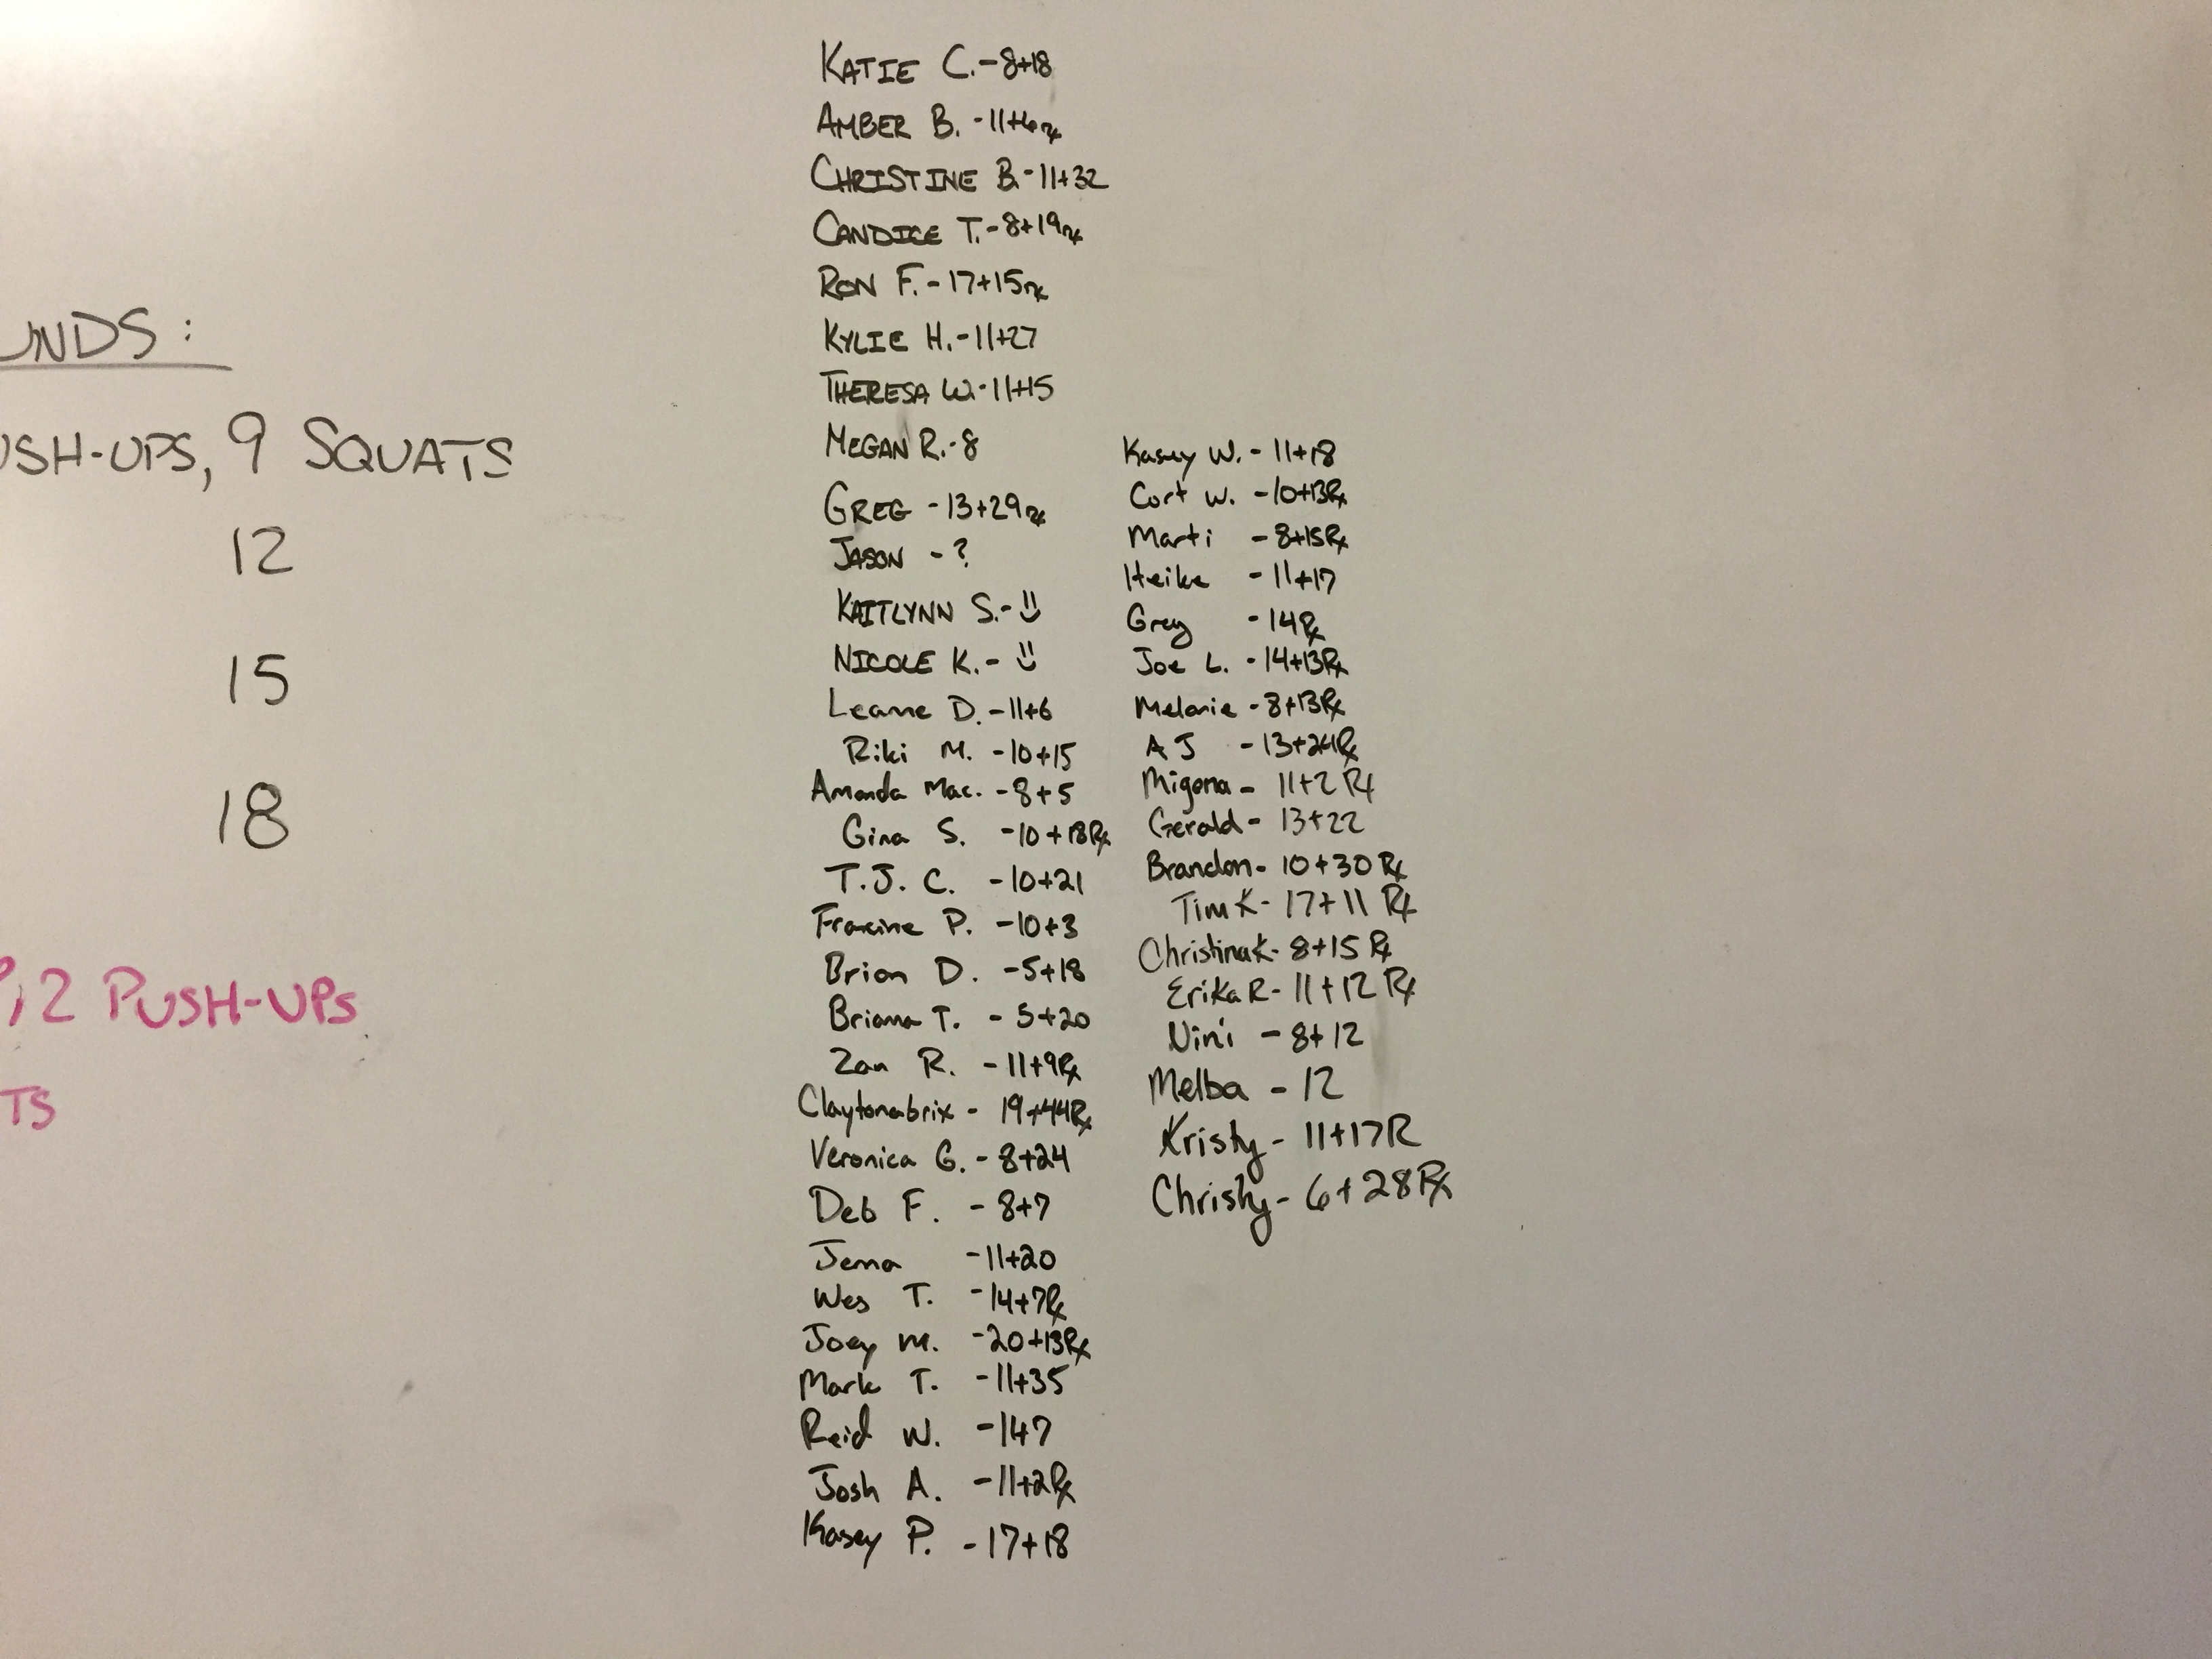 UNDS:
USH-UPS, 9 SQUATS
12
15
18
, 2 PUSH-UPS
TS
KATIE C. - 8+18
AMBER B. - 11+6 rx
CHRISTINE B. - 11+32
CANDICE T. - 8+19 rx
RON F. - 17+15 rx
KYLIE H. - 11+27
THERESA W. - 11+15
MEGAN R. - 8
GREG - 13+29 rx
JASON - ?
KAITLYNN S. - ")
NICOLE K. - ")
Leanne D. - 11+6
Riki M. - 10+15
Amanda Mac. - 8+5
Gina S. - 10+18 Rx
T.J. C. - 10+21
Francine P. - 10+3
Brian D. - 5+18
Briana T. - 5+20
Zan R. - 11+9 Rx
Claytonabrix - 19+44 Rx
Veronica G. - 8+24
Deb F. - 8+7
Jenna - 11+20
Wes T. - 14+7 Rx
Joey M. - 20+13 Rx
Mark T. - 11+35
Reid W. - 147
Josh A. - 11+2 Rx
Kasey P. - 17+18
Kasey W. - 11+18
Cort W. - 10+13 Rx
Marti - 8+15 Rx
Heike - 11+17
Greg - 14 Rx
Joe L. - 14+13 Rx
Melanie - 8+13 Rx
AJ - 13+24 Rx
Migena - 11+2 Rx
Gerald - 13+22
Brandon - 10+30 Rx
Tim K - 17+11 Rx
Christina K - 8+15 Rx
Erika R - 11+12 Rx
Nini - 8+12
Melba - 12
Kristy - 11+17 R
Christy - 6+28 Rx